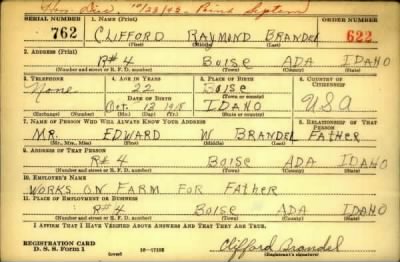 Hon. Disc 10/23/45
SERIAL NUMBER 1. NAME (Print) ORDER NUMBER
762 CLIFFORD RAYMOND BRANDEL 622
(First) (Middle) (Last)
2. ADDRESS (Print)
R#4 BOISE ADA IDAHO
(Number and street or R. F. D. number) (Town) (County) (State)
3. TELEPHONE 4. AGE IN YEARS 5. PLACE OF BIRTH 6. COUNTRY OF CITIZENSHIP
None 22 BOISE
DATE OF BIRTH (Town or county)
Oct. 13 1918 IDAHO USA
(Exchange) (Number) (Mo.) (Day) (Yr.) (State or country)
7. NAME OF PERSON WHO WILL ALWAYS KNOW YOUR ADDRESS 8. RELATIONSHIP OF THAT PERSON
MR. EDWARD W BRANDEL FATHER
(Mr., Mrs., Miss) (First) (Middle) (Last)
9. ADDRESS OF THAT PERSON
R#4 BOISE ADA IDAHO
(Number and street or R. F. D. number) (Town) (County) (State)
10. EMPLOYER'S NAME
WORKS ON FARM FOR FATHER
11. PLACE OF EMPLOYMENT OR BUSINESS
R#4 BOISE ADA IDAHO
(Number and street or R. F. D. number) (Town) (County) (State)
I AFFIRM THAT I HAVE VERIFIED ABOVE ANSWERS AND THAT THEY ARE TRUE.
REGISTRATION CARD
D. S. S. Form 1 (over) 16—17105 Clifford Brandel
(Registrant's signature)